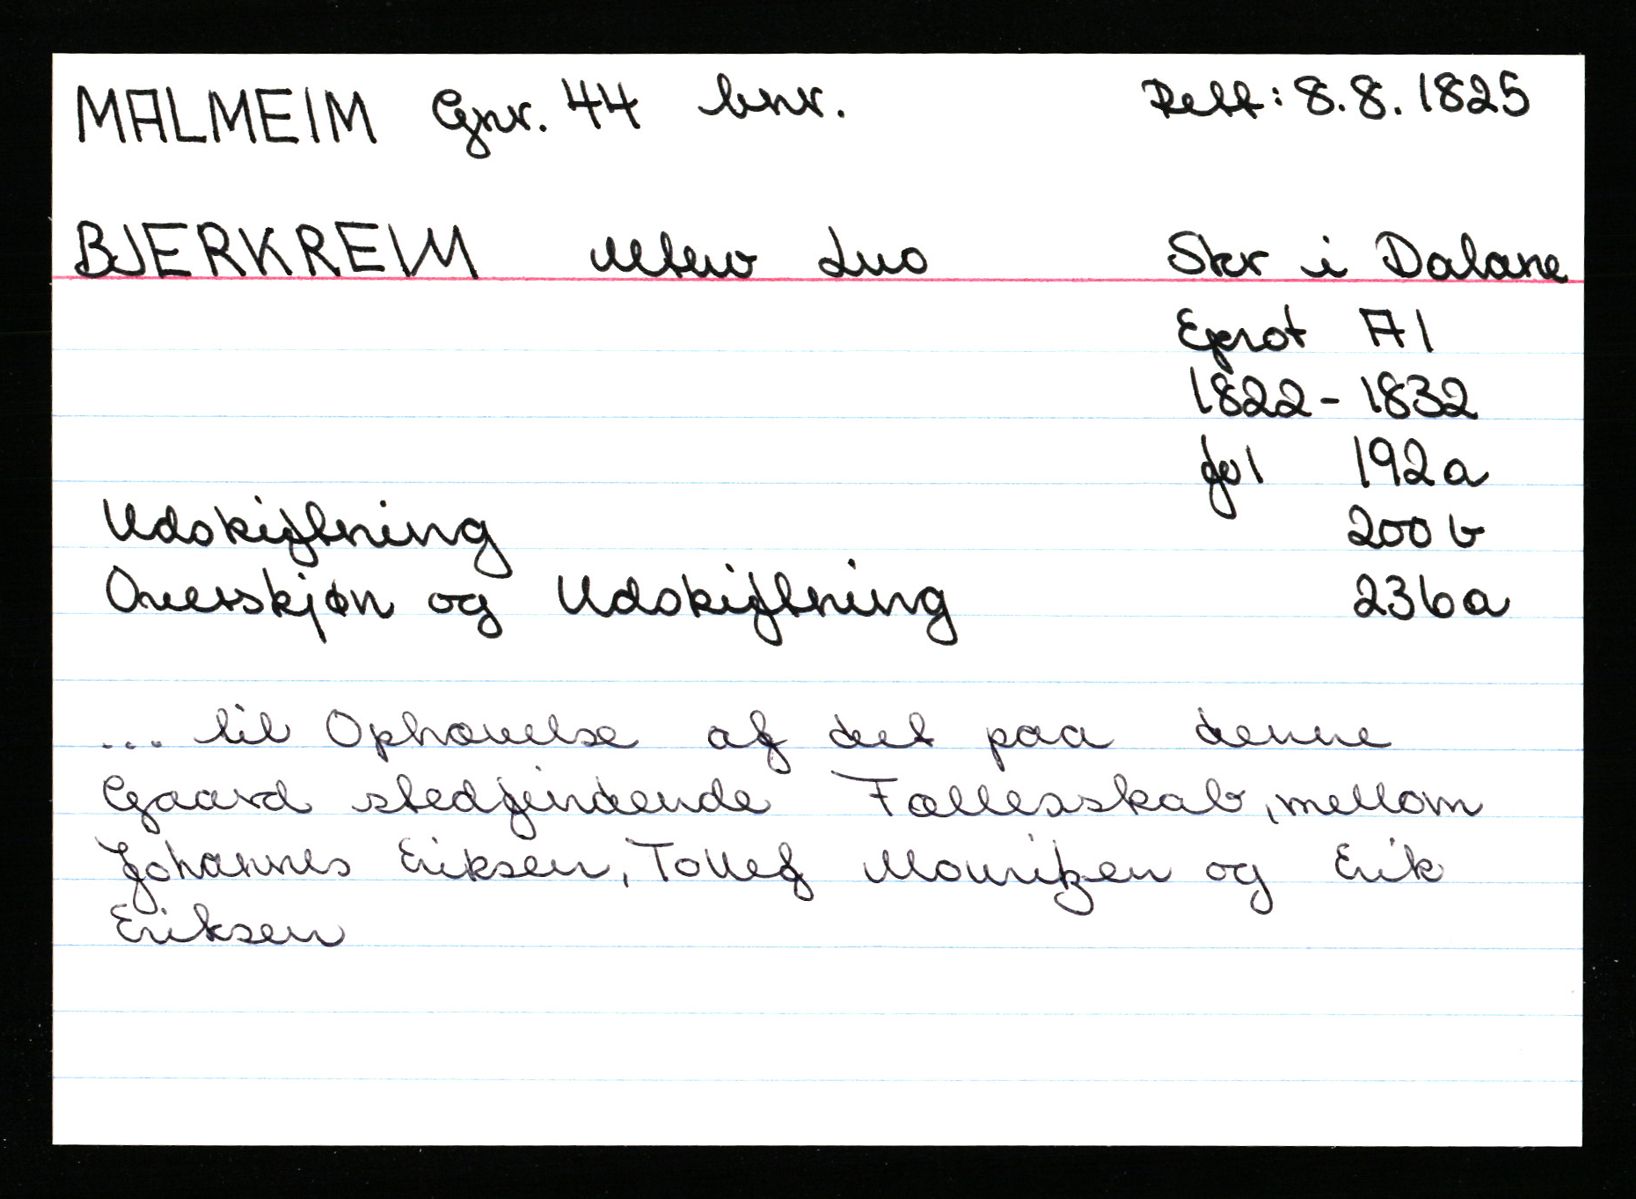 MALMEIM Gnr. 44 bnr. Rett: 8.8.1825
BJERKREIM Uten Lno Skr i Dalane
Eprot A1
1822-1832
fol 192a
Udskiftning 200b
Overskjøn og Udskiftning 236a
... til Ophævelse af det paa denne
Gaard stedfindende Fællesskab, mellom
Johannes Eriksen, Tollef Mouritzen og Erik
Eriksen